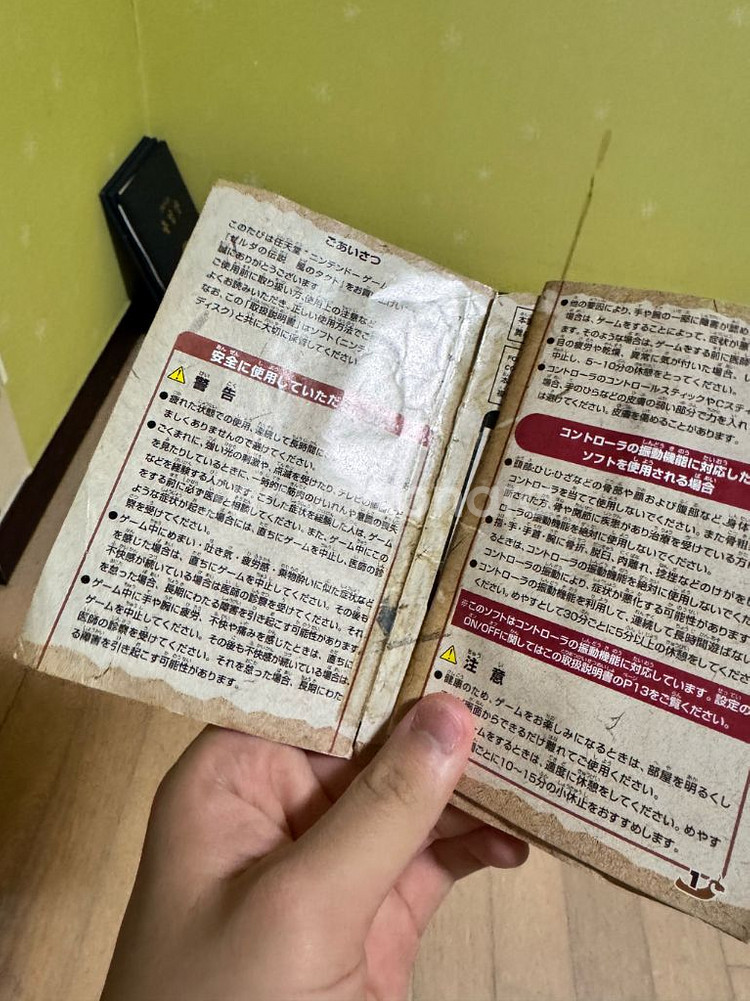 ごあいさつ
このたびは任天堂・ニンテンドーゲーム
「ゼルダの伝説 風のタクト」をお買
誠にありがとうございます
ご使用前に取り扱い方、使用上の注意など
よくお読みいただき、正しい使用方法で
なお、この「取扱説明書」はソフト(ニンテ
ディスク)と共に大切に保管してください
安全に使用していただ
警告
●疲れた状態での使用、連続して長時間に
ましくありませんので避けてください。
●ごくまれに、強い光の刺激や、点滅を受けたり、テレビの
を見たりしているときに、一時的に筋肉のけいれんや意識の喪失
などを経験する人がいます。こうした症状を経験した人は、ゲーム
をする前に必ず医師と相談してください。また、ゲーム中にこの
ような症状が起きた場合には、直ちにゲームを中止し、医師の診
察を受けてください。
●ゲーム中にめまい・吐き気・疲労感・乗物酔いに似た症状など
を感じた場合は、直ちにゲームを中止してください。その後も
不快感が続いている場合は医師の診察を受けてください。それ
を怠った場合、長期にわたる障害を引き起こす可能性があります。
●ゲーム中に手や腕に疲労、不快や痛みを感じたときは、直ちに
ゲームを中止してください。その後も不快感が続いている場合は、
医師の診察を受けてください。それを怠った場合、長期にわた
る障害を引き起こす可能性があります。
●他の要因により、手や腕の一部に障害が認め
場合は、ゲームをすることによって、症状が悪
ます。そのような場合は、ゲームをする前に医師
●目の疲労や乾燥、異常に気が付いた場合、
中止し、5~10分の休憩をとってください。
●コントローラのコントロールスティックやCステ
場合、手のひらなどの皮膚の弱い部分で力を入れ
は避けてください。皮膚を傷めることがあります。
コントローラの振動機能に対応した
ソフトを使用される場合
●頭部・ひじ・ひざなどの骨部や顔および腹部など、身体
コントローラを当てて使用しないでください。また骨粗
断された方、骨や関節に疾患があり治療を受けている方
ローラの振動機能を絶対に使用しないでください。
●指・手・手首・腕に骨折、脱臼、肉離れ、捻挫などのけがを
るときは、コントローラの振動機能を絶対に使用しないでく
コントローラの振動により、症状が悪化する可能性があります
●コントローラの振動機能を利用して、連続して長時間遊ばな
ください。めやすとして30分ごとに5分以上の休憩をしてくださ
※このソフトはコントローラの振動機能に対応しています。設定の
ON/OFFに関してはこの取扱説明書のP13をご覧ください。
注意
●健康のため、ゲームをお楽しみになるときは、部屋を明るくし
画面からできるだけ離れてご使用ください。
ームをするときは、適度に休憩をしてください。めやす
間ごとに10~15分の小休止をおすすめします。
1